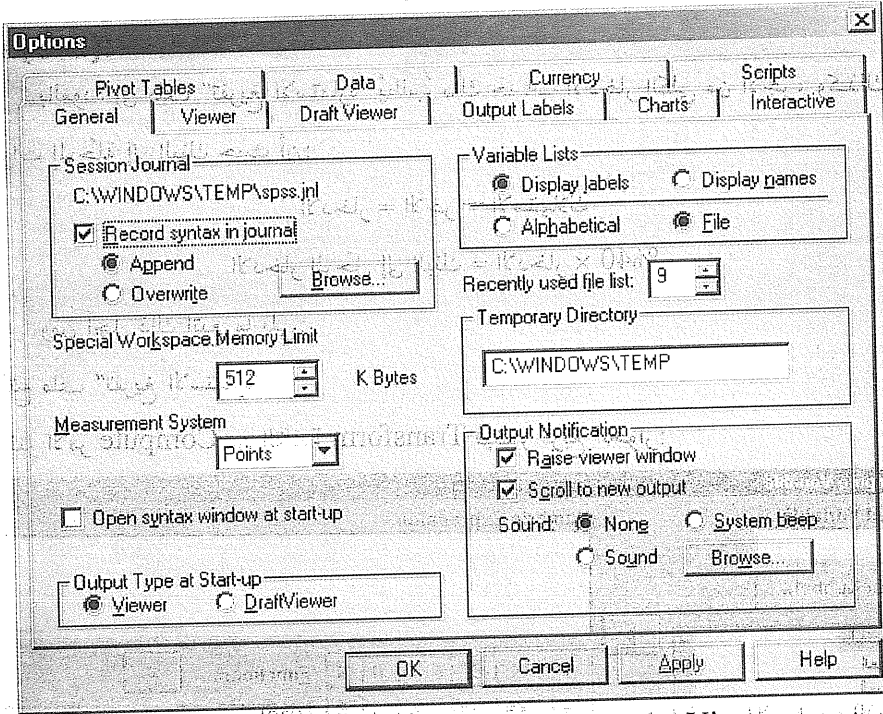 Options
Pivot Tables Data Currency Scripts
General Viewer Draft Viewer Output Labels Charts Interactive
Session Journal
C:\WINDOWS\TEMP\spss.jnl
Record syntax in journal
Append
Overwrite
Browse...
Special Workspace Memory Limit
512 K Bytes
Measurement System
Points
Open syntax window at start-up
Output Type at Start-up
Viewer DraftViewer
Variable Lists
Display labels Display names
Alphabetical File
Recently used file list: 9
Temporary Directory
C:\WINDOWS\TEMP
Output Notification
Raise viewer window
Scroll to new output
Sound: None System beep
Sound Browse...
OK Cancel Apply Help